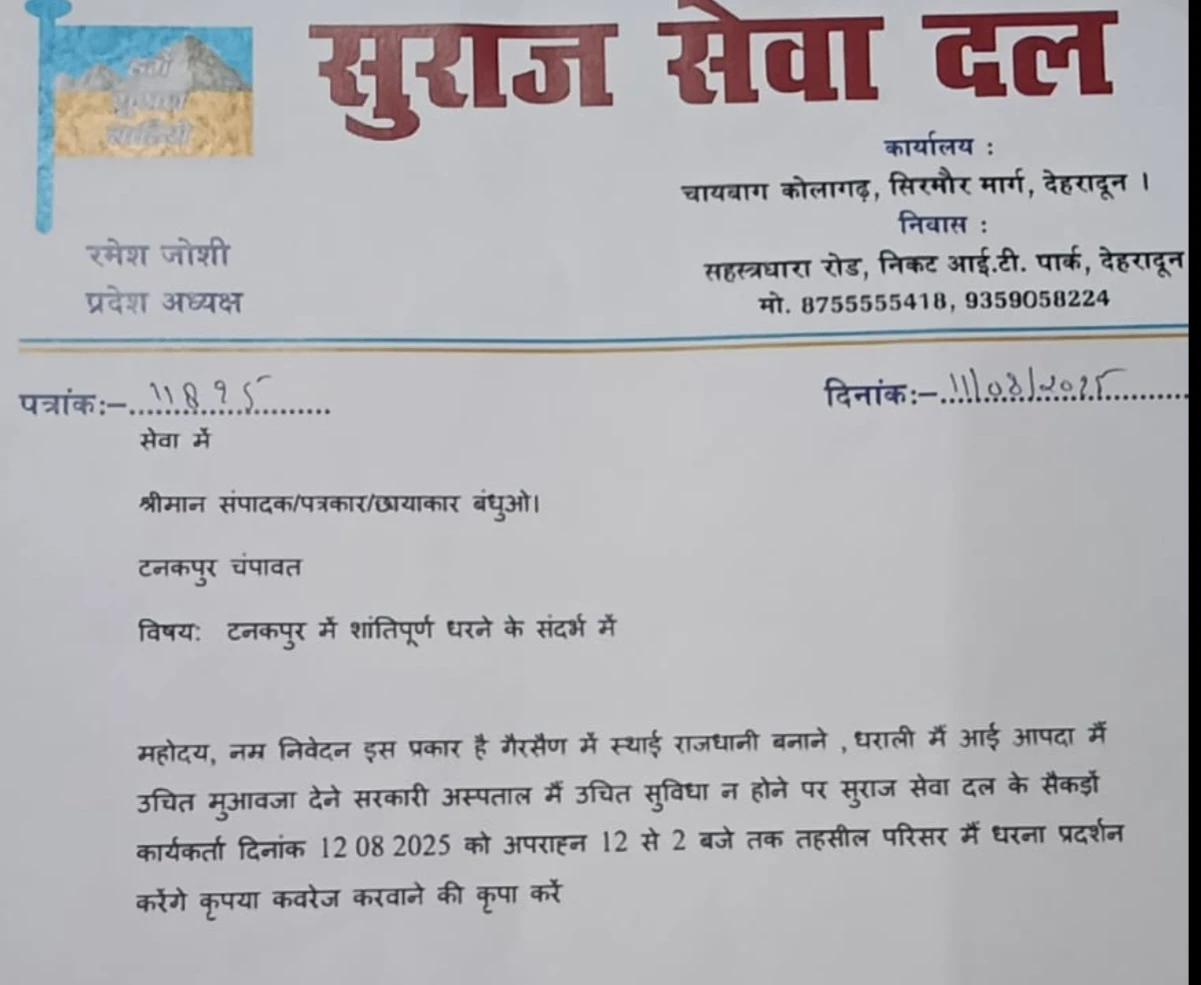 हमें
सुराज
चाहिये
सुराज सेवा दल
कार्यालय :
चायबाग कोलागढ़, सिरमौर मार्ग, देहरादून ।
निवास :
सहस्त्रधारा रोड, निकट आई.टी. पार्क, देहरादून
मो. 8755555418, 9359058224
रमेश जोशी
प्रदेश अध्यक्ष
पत्रांक:-
दिनांक:- 11/08/2025
सेवा में
श्रीमान संपादक/पत्रकार/छायाकार बंधुओ।
टनकपुर चंपावत
विषय: टनकपुर में शांतिपूर्ण धरने के संदर्भ में
महोदय, नम्र निवेदन इस प्रकार है गैरसैण में स्थाई राजधानी बनाने ,धराली मैं आई आपदा मैं
उचित मुआवजा देने सरकारी अस्पताल मैं उचित सुविधा न होने पर सुराज सेवा दल के सैकड़ों
कार्यकर्ता दिनांक 12 08 2025 को अपराह्न 12 से 2 बजे तक तहसील परिसर मैं धरना प्रदर्शन
करेंगे कृपया कवरेज करवाने की कृपा करें